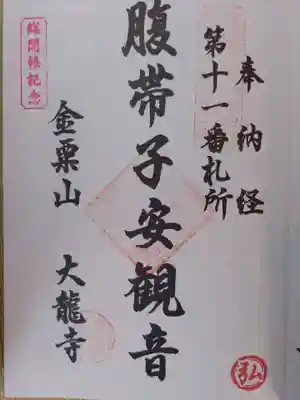 奉納経
第十一番札所
腹帯子安観音
金粟山 大龍寺
総開帳記念
弘